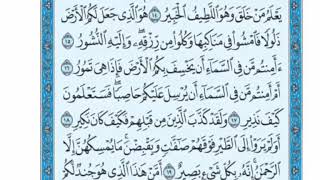 يَعْلَمُ مَنْ خَلَقَ وَهُوَ ٱللَّطِيفُ ٱلْخَبِيرُ ١٤ هُوَ ٱلَّذِى جَعَلَ لَكُمُ ٱلْأَرْضَ
ذَلُولًا فَٱمْشُوا۟ فِى مَنَاكِبِهَا وَكُلُوا۟ مِن رِّزْقِهِۦ وَإِلَيْهِ ٱلنُّشُورُ ١٥
ءَأَمِنتُم مَّن فِى ٱلسَّمَآءِ أَن يَخْسِفَ بِكُمُ ٱلْأَرْضَ فَإِذَا هِىَ تَمُورُ ١٦
أَمْ أَمِنتُم مَّن فِى ٱلسَّمَآءِ أَن يُرْسِلَ عَلَيْكُمْ حَاصِبًا فَسَتَعْلَمُونَ
كَيْفَ نَذِيرِ ١٧ وَلَقَدْ كَذَّبَ ٱلَّذِينَ مِن قَبْلِهِمْ فَكَيْفَ كَانَ نَكِيرِ ١٨
أَوَلَمْ يَرَوْا۟ إِلَى ٱلطَّيْرِ فَوْقَهُمْ صَٰٓفَّٰتٍ وَيَقْبِضْنَ مَا يُمْسِكُهُنَّ إِلَّا
ٱلرَّحْمَٰنُ إِنَّهُۥ بِكُلِّ شَىْءٍۭ بَصِيرٌ ١٩ أَمَّنْ هَٰذَا ٱلَّذِى هُوَ جُندٌ لَّكُمْ